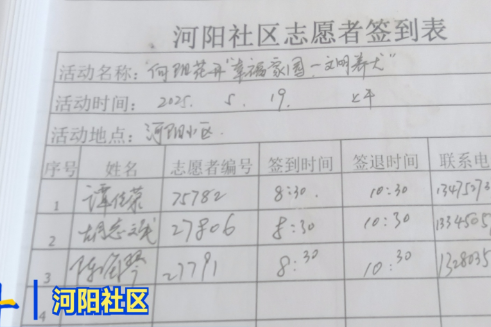 河阳社区志愿者签到表
活动名称: "幸福家园—文明养犬"
活动时间: 2025. 5. 19. 上午
活动地点: 河阳小区.
序号 姓名 志愿者编号 签到时间 签退时间 联系电
1 谭 荣 75782 8:30. 10:30
2 胡志 27806 8:30 10:30
3 陈 琴 27791 8:30 10:30 1328035
4
河阳社区